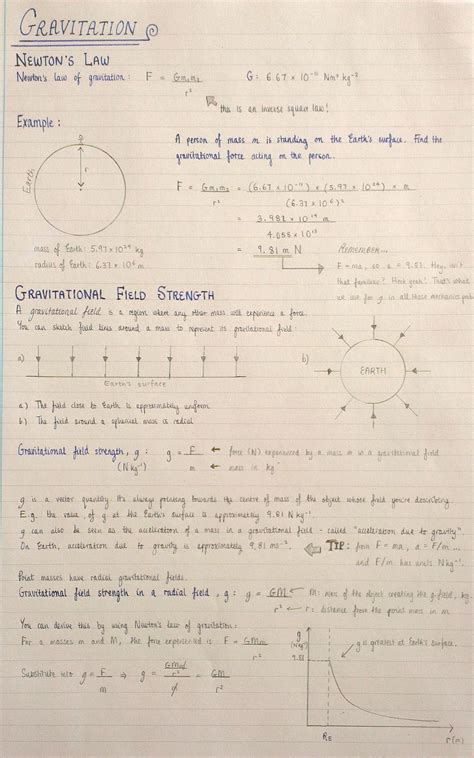 GRAVITATION
NEWTON'S LAW
Newton's law of gravitation : F = Gm₁m₂ / r² G: 6.67 x 10⁻¹¹ Nm² kg⁻²
this is an inverse square law!
Example :
A person of mass m is standing on the Earth's surface. Find the
gravitational force acting on the person.
Earth
r
F = Gm₁m₂ / r² = (6.67 x 10⁻¹¹) x (5.97 x 10²⁴) x m / (6.37 x 10⁶)²
= 3.982 x 10¹⁴ m / 4.058 x 10¹³
= 9.81 m N
mass of Earth: 5.97 x 10²⁴ kg
radius of Earth: 6.37 x 10⁶ m
Remember...
F = ma, so a = 9.81. Hey, isn't
that familiar? Heck yeah! That's what
we use for g in all those mechanics
GRAVITATIONAL FIELD STRENGTH
A gravitational field is a region where any other mass will experience a force.
You can sketch field lines around a mass to represent its gravitational field :
a)
Earth's surface
b)
EARTH
a) The field close to Earth is approximately uniform
b) The field around a spherical mass is radial
Gravitational field strength, g : g = F / m
(N kg⁻¹)
force (N) experienced by a mass m in a gravitational field
mass in kg
g is a vector quantity. It's always pointing towards the centre of mass of the object whose field you're describing.
E.g. the value of g at the Earth's surface is approximately 9.81 N kg⁻¹
g can also be seen as the acceleration of a mass in a gravitational field - called "acceleration due to gravity".
On Earth, acceleration due to gravity is approximately 9.81 ms⁻².
TIP: from F = ma, a = F/m ...
and F/m has units N kg⁻¹.
Point masses have radial gravitational fields.
Gravitational field strength in a radial field, g : g = GM / r²
M: mass of the object creating the g-field, kg.
r: distance from the point mass in m
You can derive this by using Newton's law of gravitation:
For a masses m and M, the force experienced is F = GMm / r²
Substitute into g = F / m → g = GMm / r² / m = GM / r²
g
(N kg⁻¹)
9.81
g is greatest at Earth's surface.
R_E
r (m)